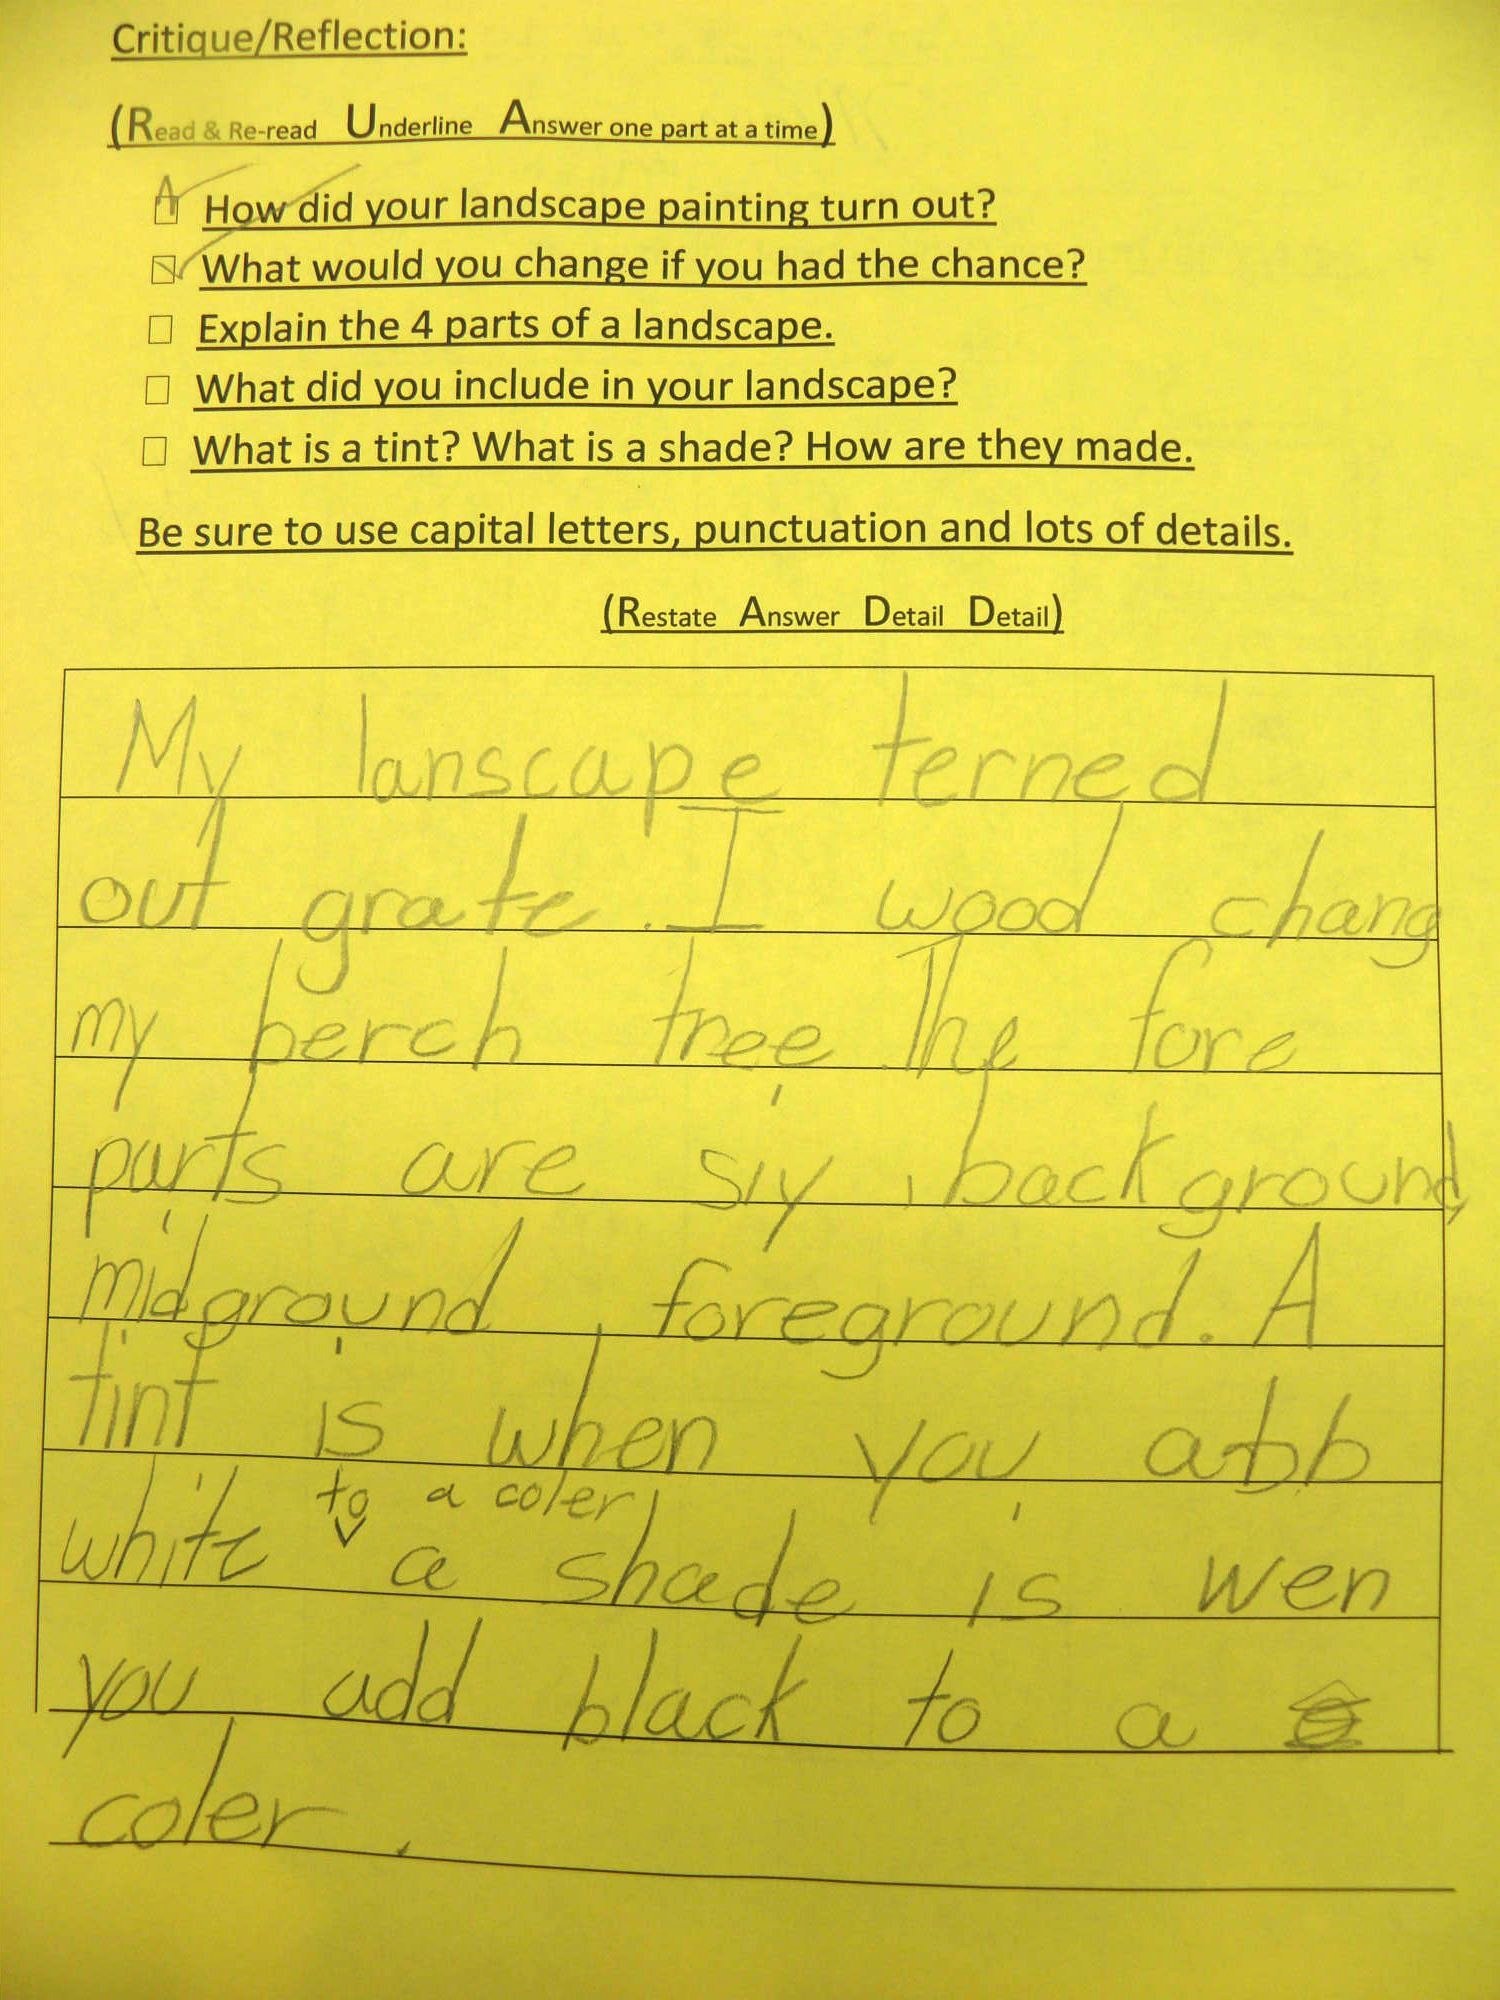 Critique/Reflection:
(Read & Re-read Underline Answer one part at a time)
How did your landscape painting turn out?
What would you change if you had the chance?
Explain the 4 parts of a landscape.
What did you include in your landscape?
What is a tint? What is a shade? How are they made.
Be sure to use capital letters, punctuation and lots of details.
(Restate Answer Detail Detail)
My lanscape terned
out grate. I wood chang
my berch tree. The fore
parts are siy, background,
midground, foreground. A
tint is when you abb
to a coler
white a shade is wen
you add black to a
coler.